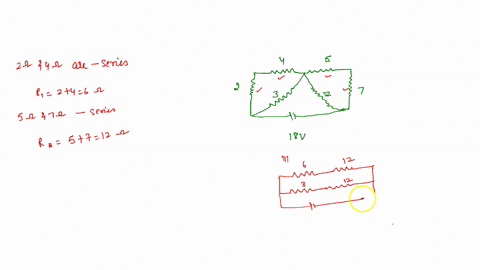 2Ω & 4Ω are - series
R₁ = 2+4 = 6 Ω
5Ω & 7Ω - series
R₂ = 5+7 = 12 Ω
4 5
2 3 12 7
18V
6 12
3 12